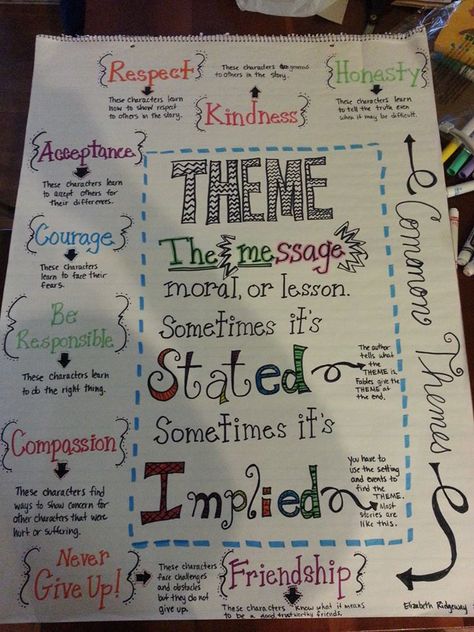 Respect
These characters learn
how to show respect
to others in the story.
These characters
to others in the story.
Kindness
Honasty
These characters learn
to tell the truth even
when it may be difficult.
Acceptance
These characters learn
to accept others for
their differences.
Courage
These characters
learn to face their
fears.
Be
Responsible
These characters learn
to do the right thing.
Compassion
These characters find
ways to show concern for
other characters that were
hurt or suffering.
Never
Give Up!
These characters
face challenges
and obstacles
but they do not
give up.
Friendship
These characters know what it means
to be a good trustworthy friends.
THEME
The message
moral, or lesson.
Sometimes it's
Stated
The author
tells what
the THEME is.
Fables give the
THEME at
the end.
Sometimes it's
Implied
You have to
use the setting
and events to
find the
THEME.
Most
stories are
like this.
Common Themes
Elizabeth Ridgeway